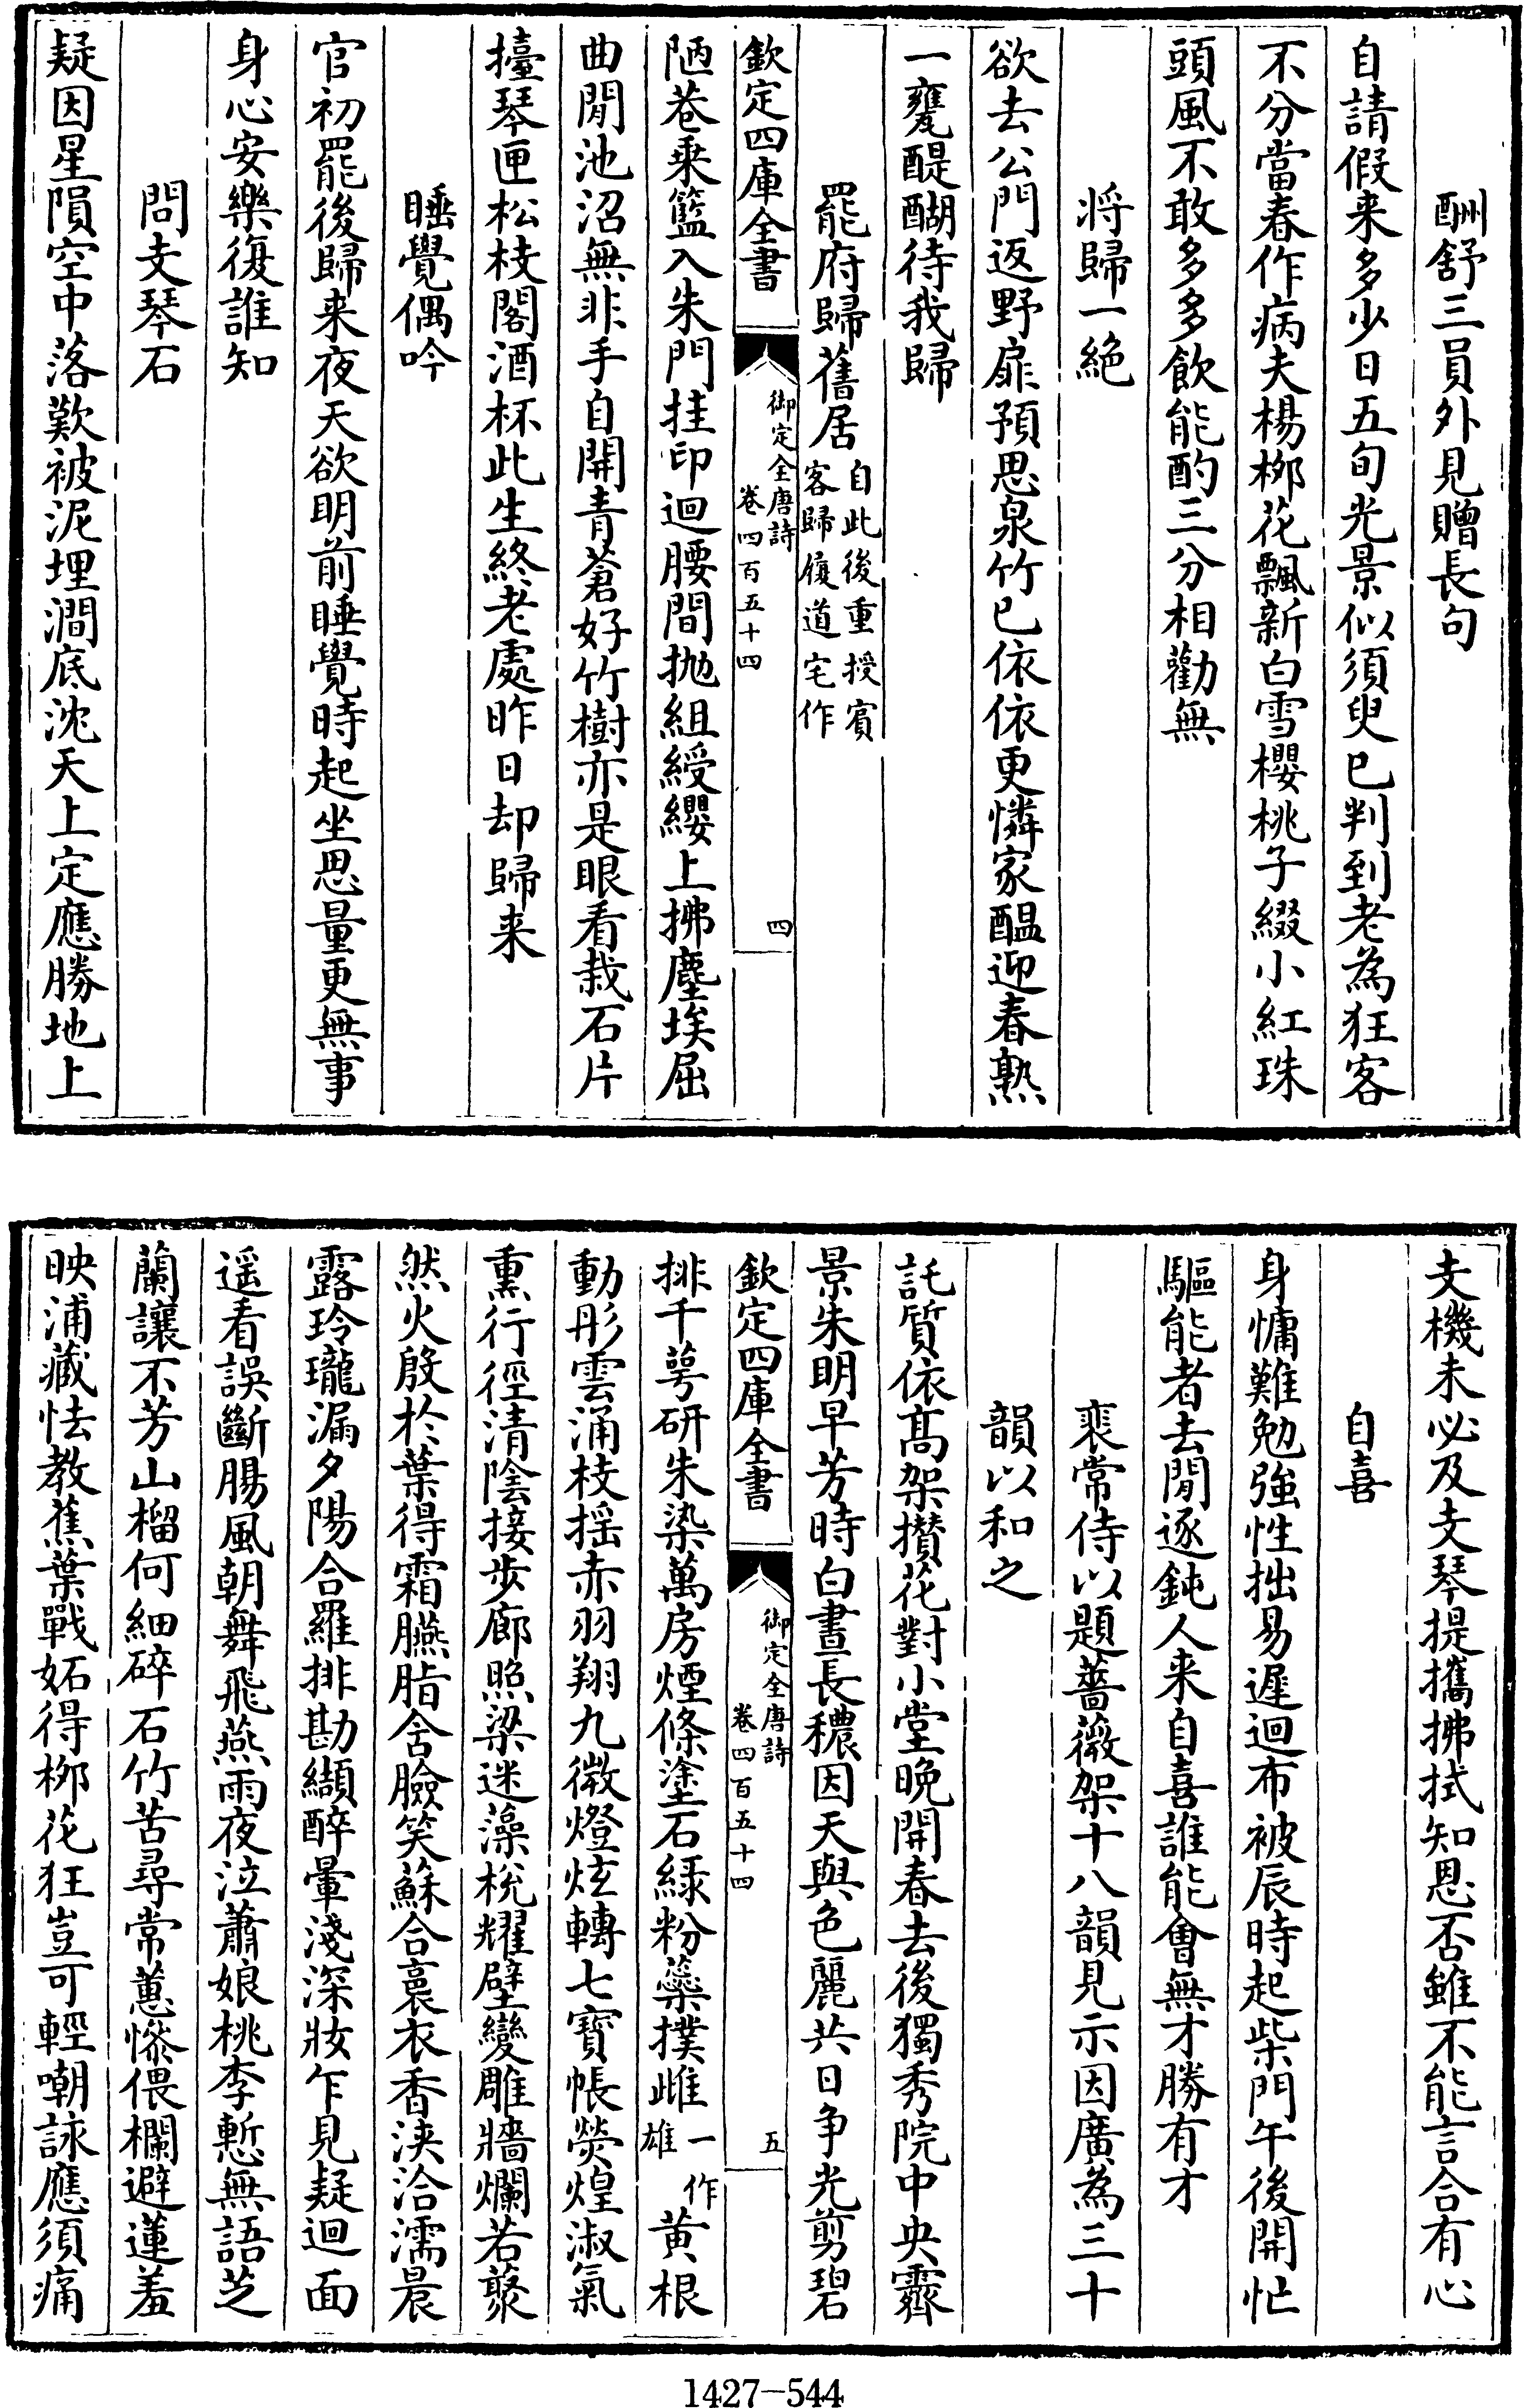 酬舒三員外見贈長句
自請假来多少日五旬光景似須臾已判到老為狂客
不分當春作病夫楊栁花飄新白雪櫻桃子綴小紅珠
頭風不敢多多飲能酌三分相勸無
将歸一絶
欲去公門返野扉預思泉竹已依依更憐家醖迎春熟
一甕醍醐待我歸
罷府歸舊居自此後重授賓客歸履道宅作
欽定四庫全書
御定全唐詩
卷四百五十四
四
陋巷乗籃入朱門挂印迴腰間抛組綬纓上拂塵埃屈
曲閒池沼無非手自開青蒼好竹樹亦是眼看栽石片
擡琴匣松枝閣酒杯此生終老處昨日却歸来
睡覺偶吟
官初罷後歸来夜天欲明前睡覺時起坐思量更無事
身心安樂復誰知
問支琴石
疑因星隕空中落歎被泥埋澗底沈天上定應勝地上
支機未必及支琴提攜拂拭知恩否雖不能言合有心
自喜
身慵難勉強性拙易遲迴布被辰時起柴門午後開忙
驅能者去閒逐鈍人来自喜誰能會無才勝有才
裴常侍以題薔薇架十八韻見示因廣為三十
韻以和之
託質依髙架攅花對小堂晩開春去後獨秀院中央霽
景朱明早芳時白晝長穠因天與色麗共日争光剪碧
欽定四庫全書
御定全唐詩
卷四百五十四
五
排千萼研朱染萬房煙條塗石緑粉蘂撲雌一作雄黄根
動彤雲涌枝揺赤羽翔九微燈炫轉七寳帳熒煌淑氣
熏行徑清陰接步廊照梁迷藻梲耀壁變雕牆爛若蘂
然火殷於葉得霜臙脂含臉笑蘇合裛衣香浹洽濡晨
露玲瓏漏夕陽合羅排勘纈醉暈淺深妝乍見疑迴面
遥看誤斷腸風朝舞飛燕雨夜泣蕭娘桃李慙無語芝
蘭讓不芳山榴何細碎石竹苦尋常蕙慘偎欄避蓮羞
映浦藏怯教蕉葉戰妬得栁花狂豈可輕嘲詠應須痛
1427—544